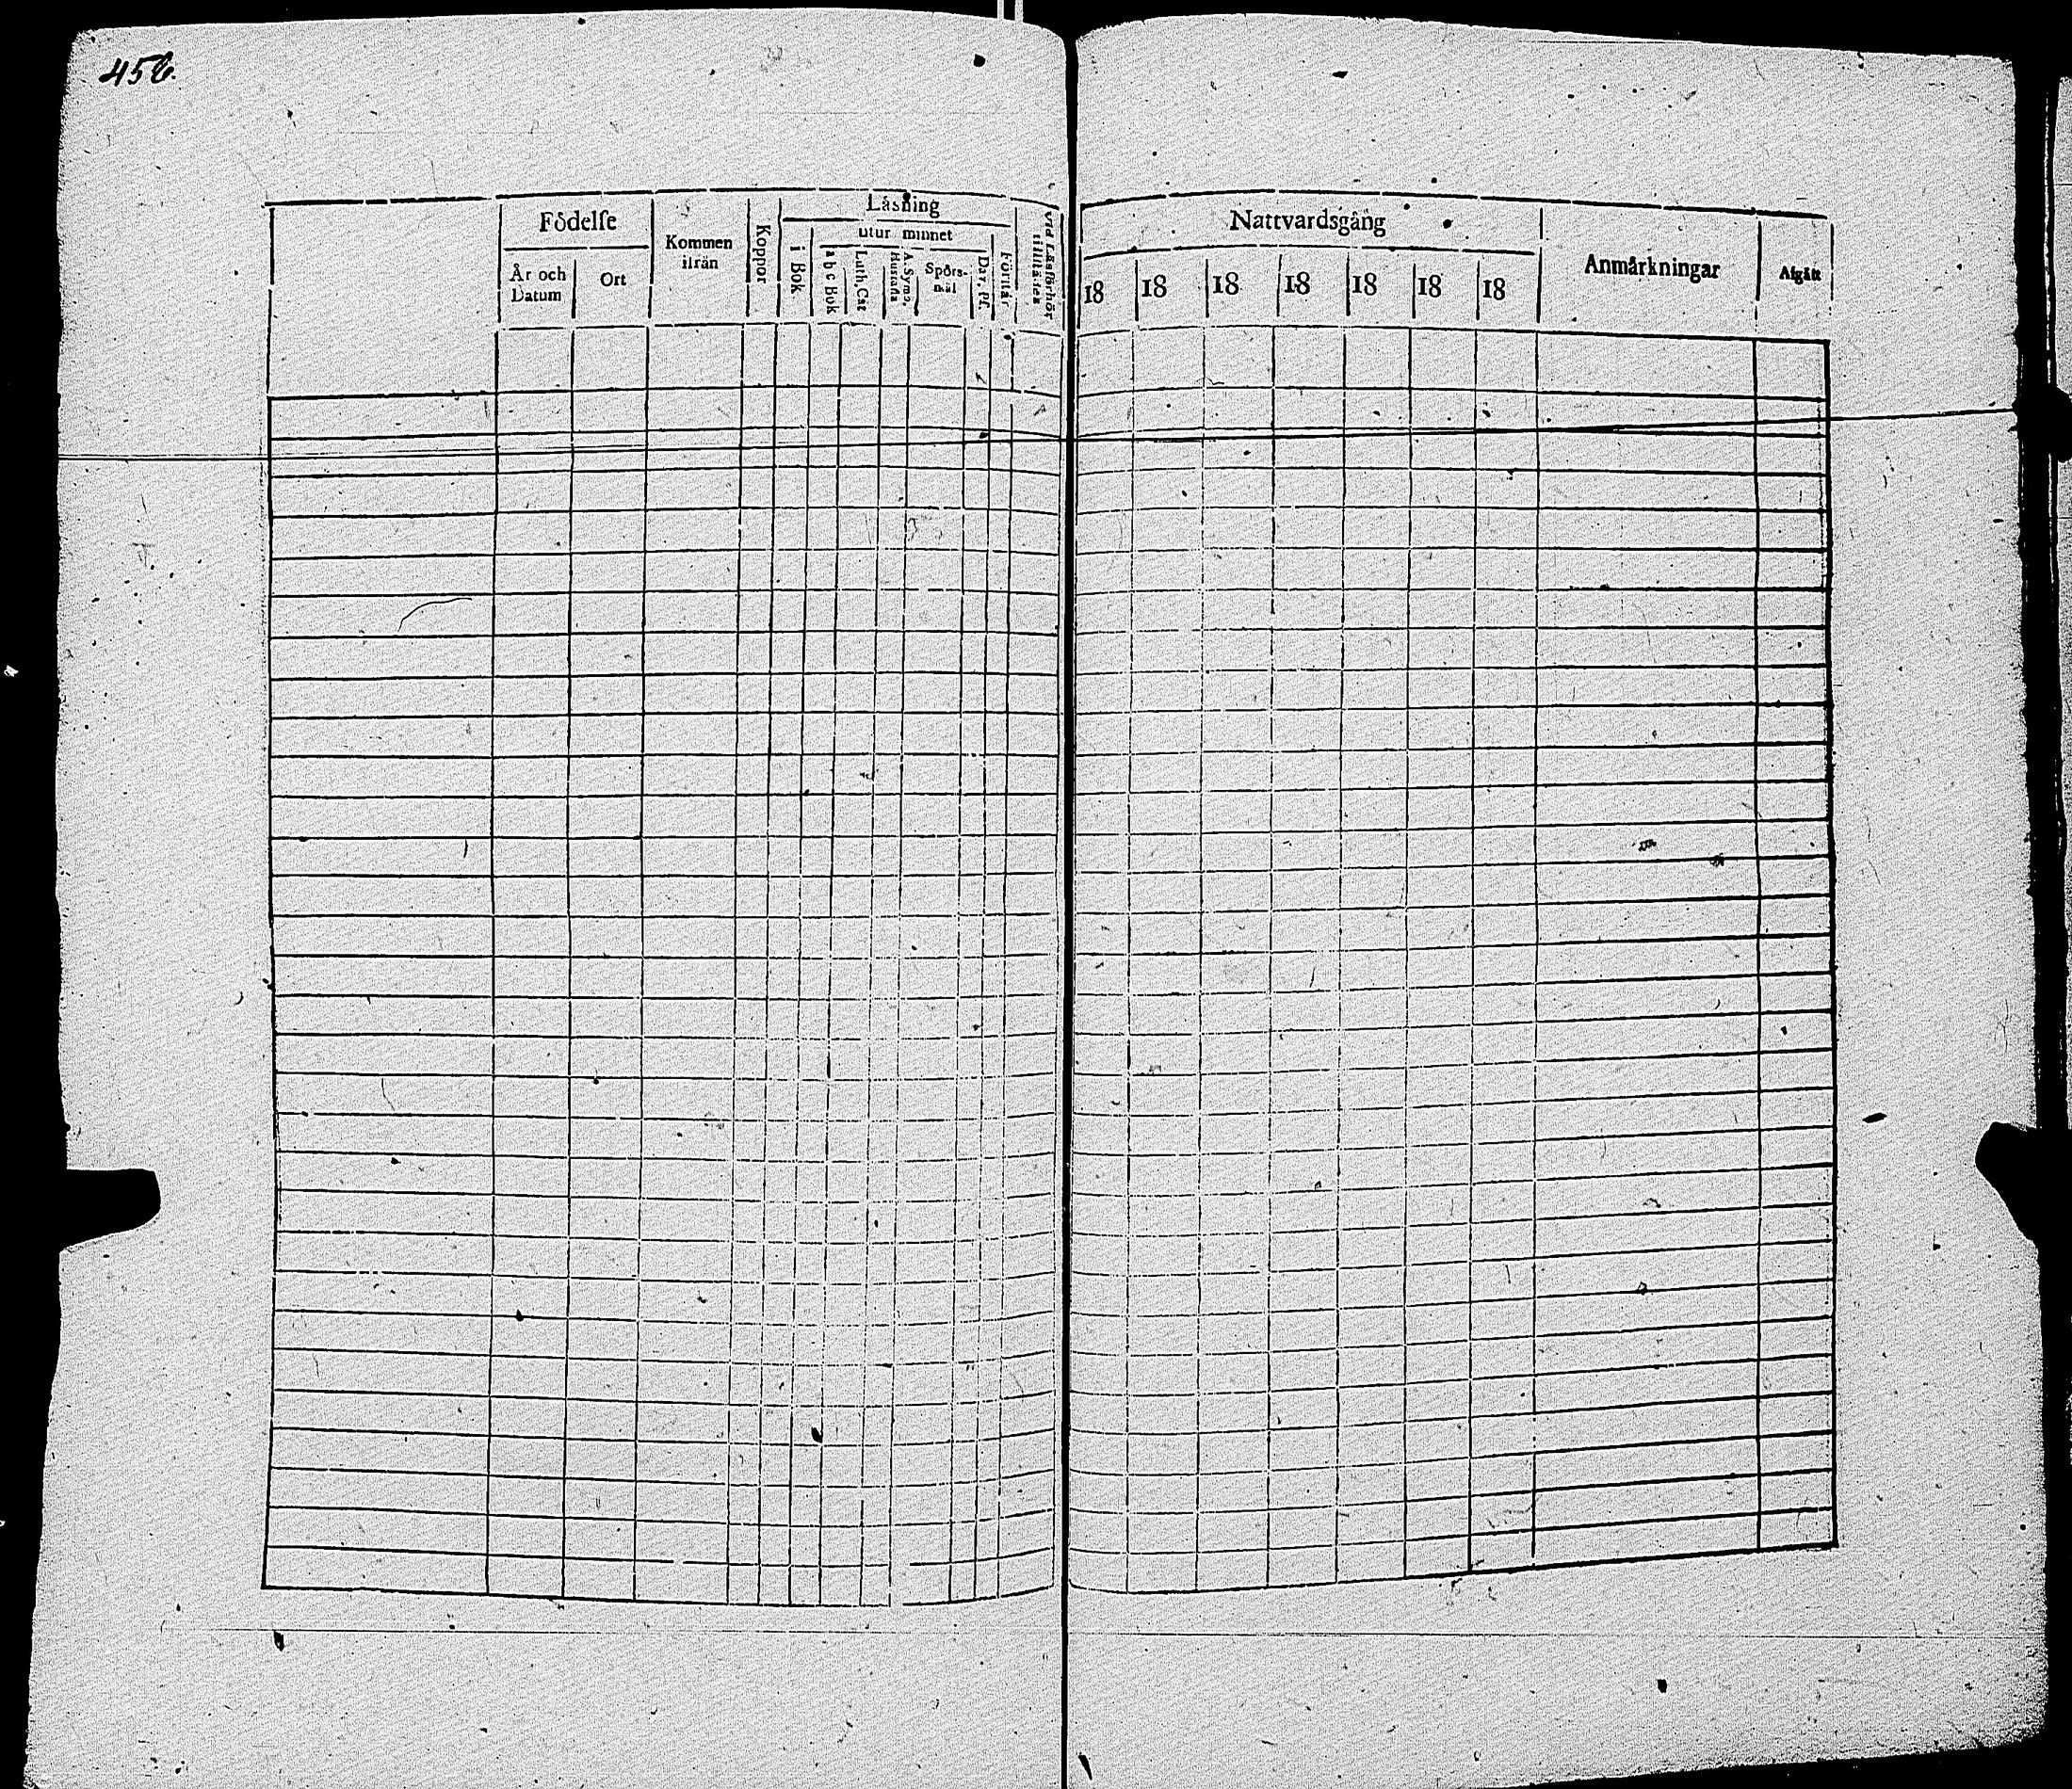 456.
Födelse
År och Datum
Ort
Kommen ifrån
Koppor
Läsning
i Bok
utur minnet
a b c Bok
Luth. Cat
A. Symb. Hustafla
Spörs-mål
Dav. Ps.
Förstår
Vid Läsförhör tillstädes
Nattvardsgång
18 18 18 18 18 18 18
Anmärkningar
Afgått